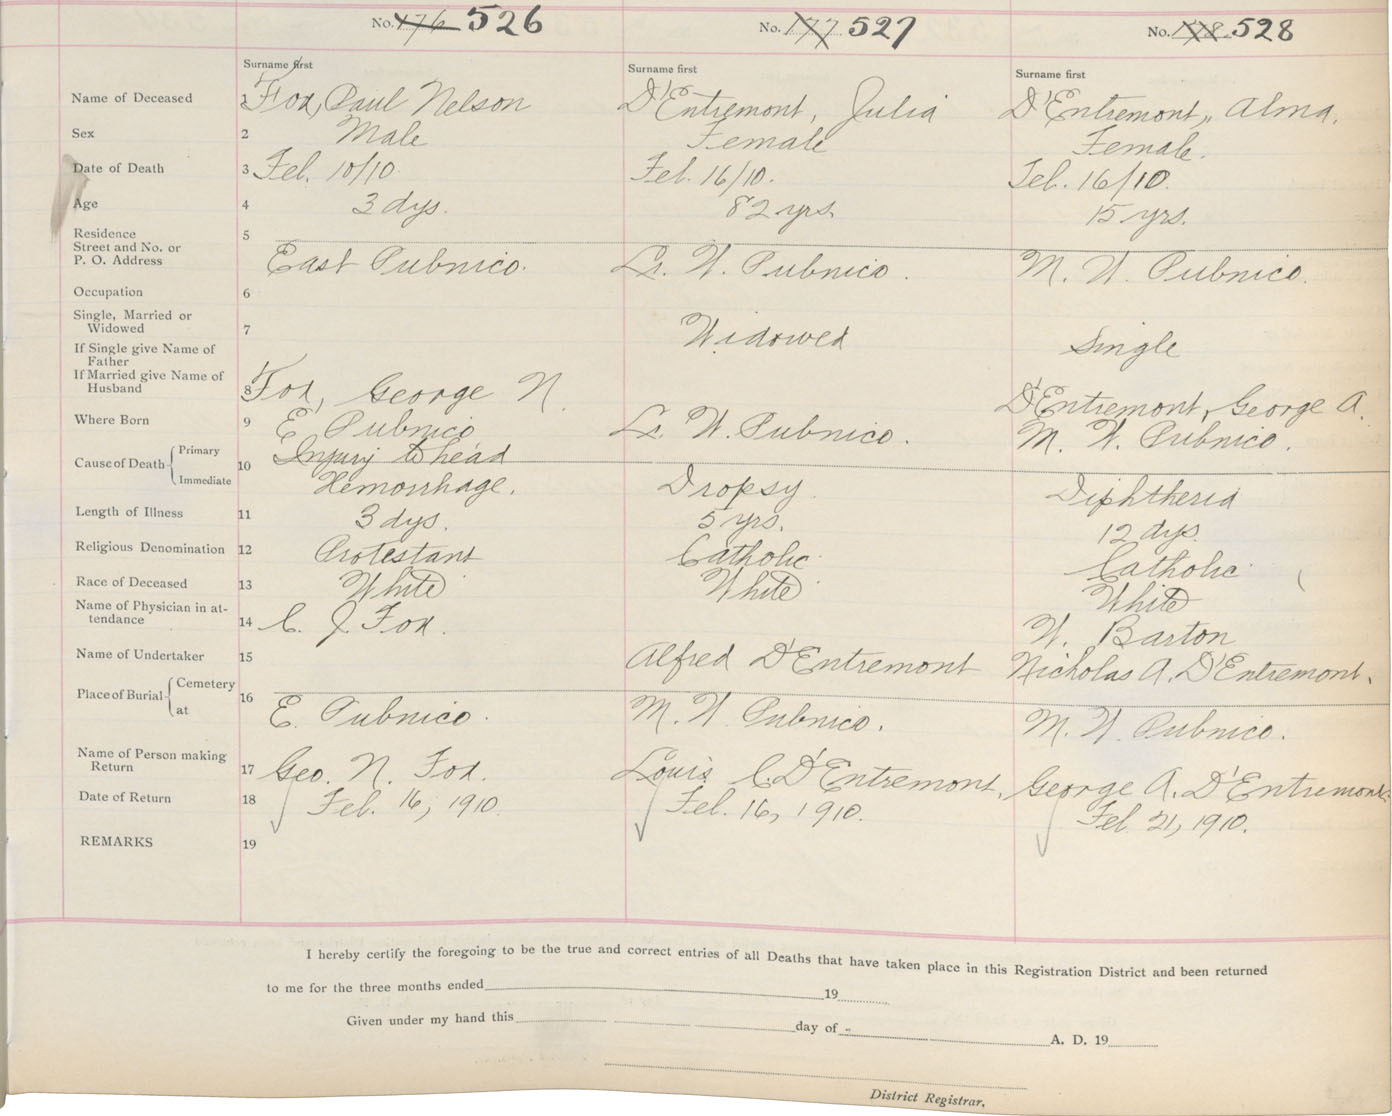 No. 176 526 No. 177 527 No. 178 528
Surname first Surname first Surname first
Name of Deceased 1 Fox, Paul Nelson D'Entremont, Julia D'Entremont, Alma.
Sex 2 Male Female Female.
Date of Death 3 Feb. 10/10. Feb. 16/10. Feb. 16/10.
Age 4 3 dys. 82 yrs. 15 yrs.
Residence 5
Street and No. or
P. O. Address East Pubnico. Lr. W. Pubnico. M. W. Pubnico.
Occupation 6
Single, Married or
Widowed 7 Widowed Single
If Single give Name of
Father
If Married give Name of
Husband 8 Fox, George N. D'Entremont, George A.
Where Born 9 E Pubnico Lr. W. Pubnico. M. W. Pubnico.
Cause of Death Primary 10 Injury to head
Immediate Hemorrhage. Dropsy. Diphtheria
Length of Illness 11 3 dys. 5 yrs. 12 dys.
Religious Denomination 12 Protestant Catholic Catholic
Race of Deceased 13 White White White
Name of Physician in at-
tendance 14 C. J. Fox. W. Barton
Name of Undertaker 15 Alfred D'Entremont Nicholas A. D'Entremont.
Place of Burial Cemetery 16
at E. Pubnico. M. W Pubnico. M. W. Pubnico.
Name of Person making
Return 17 Geo. N. Fox. Louis C. D'Entremont. George A. D'Entremont.
Date of Return 18 Feb. 16, 1910. Feb. 16, 1910. Feb. 21, 1910.
REMARKS 19
I hereby certify the foregoing to be the true and correct entries of all Deaths that have taken place in this Registration District and been returned
to me for the three months ended 19
Given under my hand this day of A. D. 19
District Registrar.